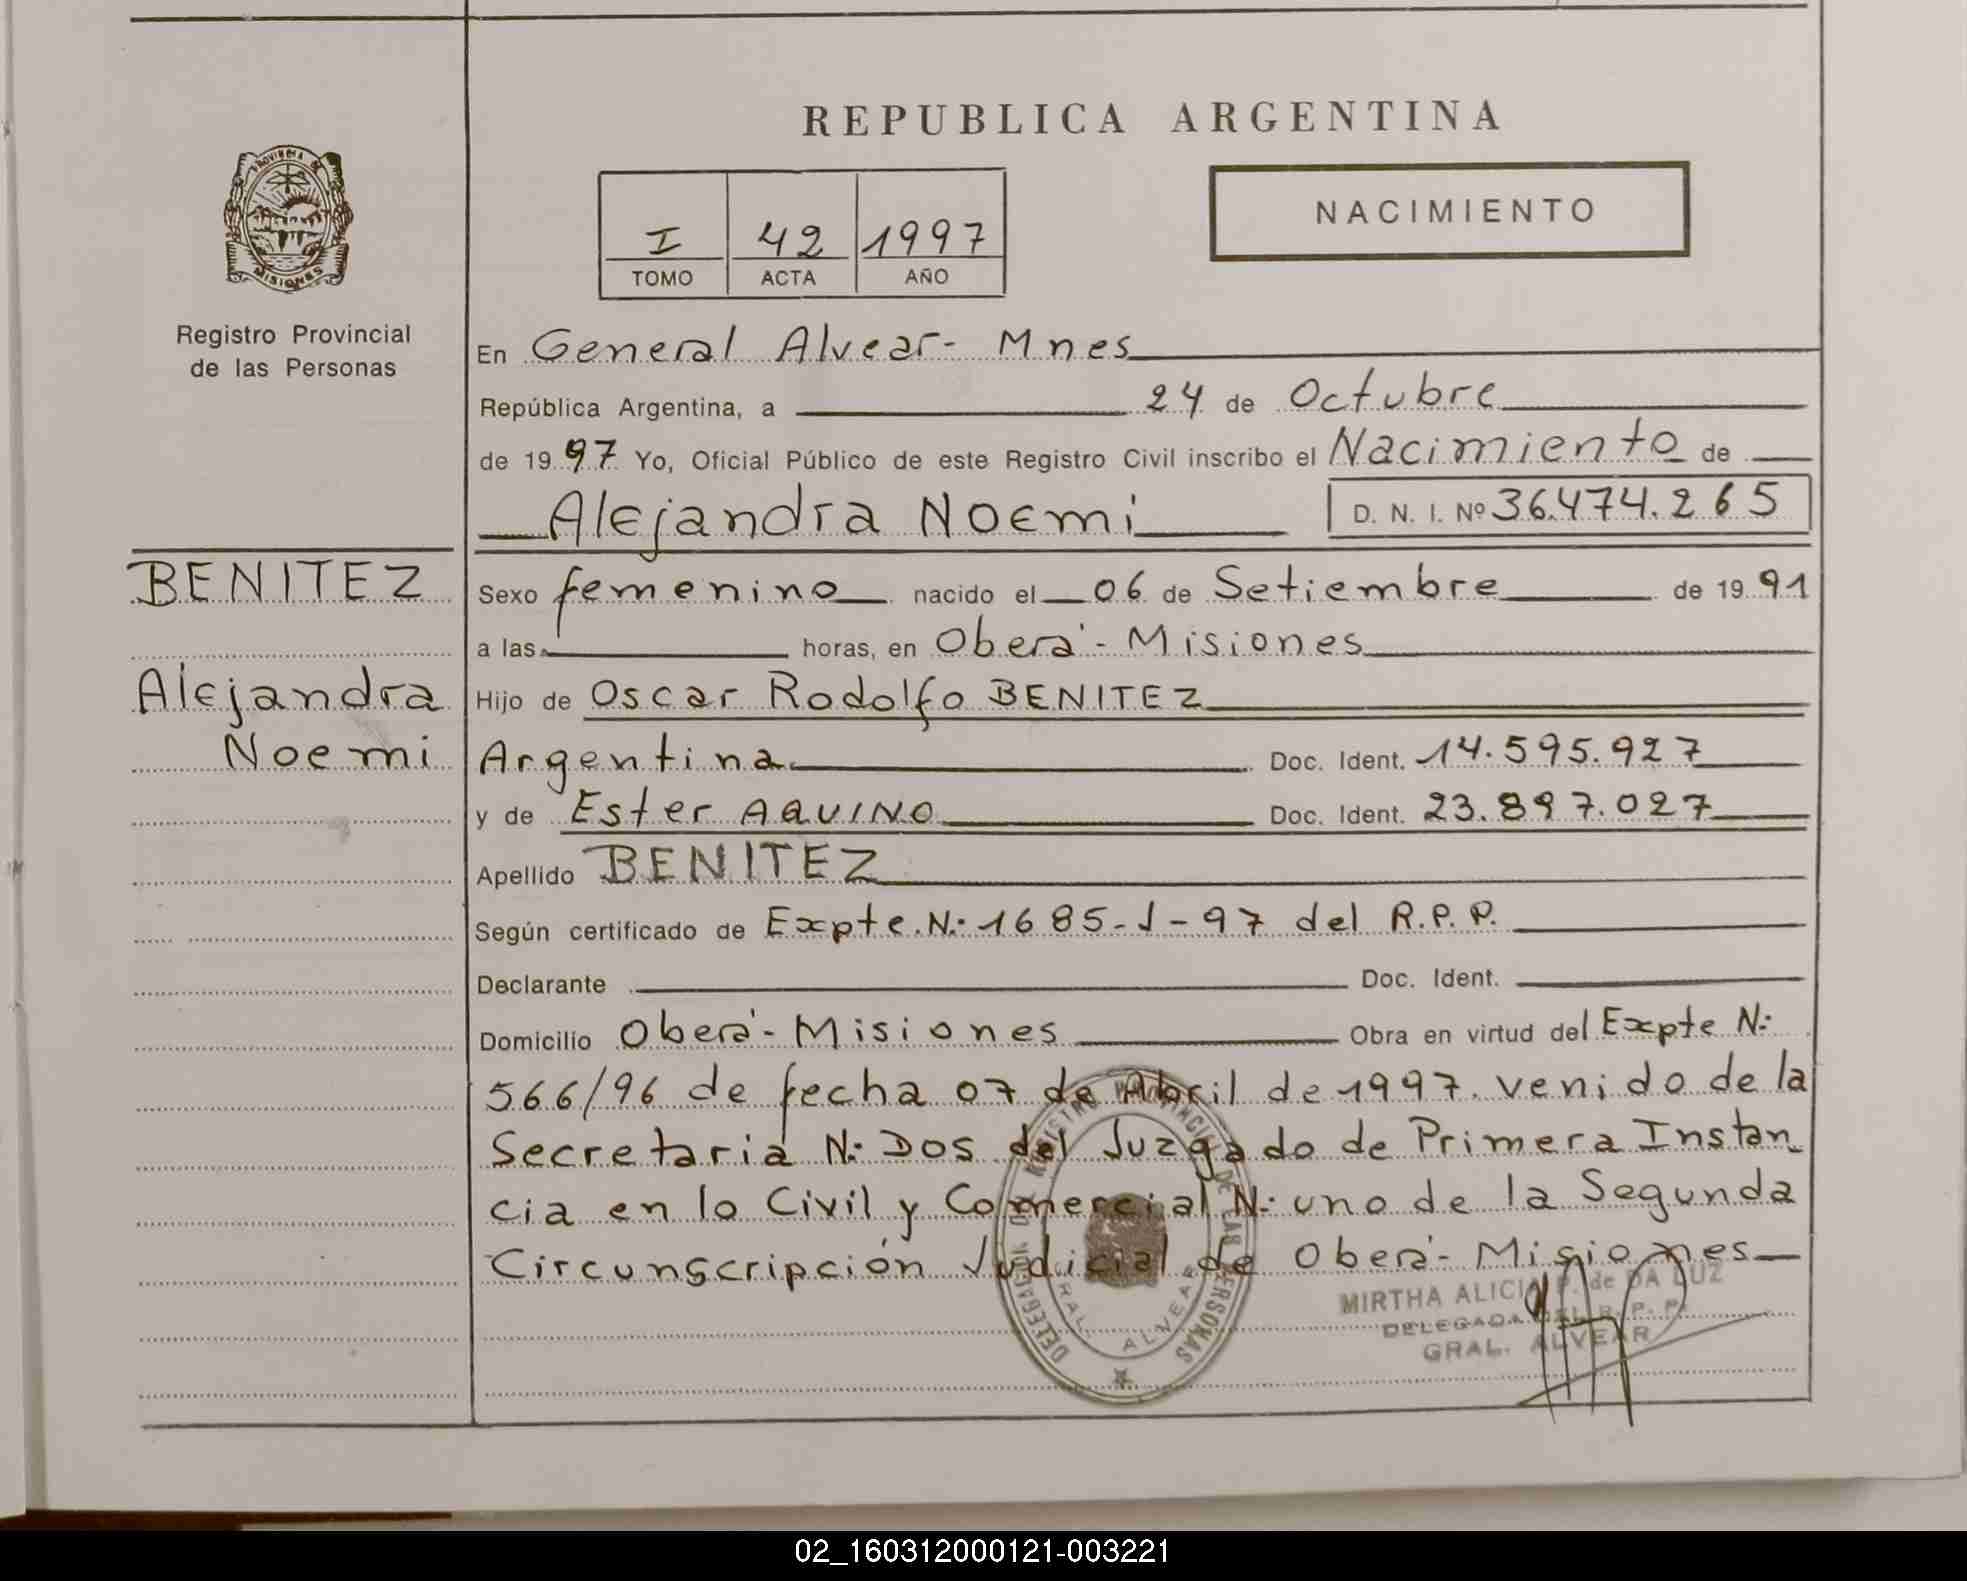 REPUBLICA ARGENTINA
PROVINCIA DE
MISIONES
Registro Provincial
de las Personas
I 42 1997
TOMO ACTA AÑO
NACIMIENTO
En General Alvear- Mnes
República Argentina, a 24 de Octubre
de 1997 Yo, Oficial Público de este Registro Civil inscribo el Nacimiento de
Alejandra Noemi D. N. I. Nº 36.474.265
BENITEZ
Alejandra
Noemi
Sexo femenino nacido el 06 de Setiembre de 1991
a las horas, en Oberá - Misiones
Hijo de Oscar Rodolfo BENITEZ
Argentina Doc. Ident. 14.595.927
y de Ester AQUINO Doc. Ident. 23.897.027
Apellido BENITEZ
Según certificado de Expte. N: 1685-J-97 del R.P.P.
Declarante Doc. Ident.
Domicilio Oberá - Misiones Obra en virtud del Expte N:
566/96 de fecha 07 de Abril de 1997. venido de la
Secretaria N: Dos del Juzgado de Primera Instan_
cia en lo Civil y Comercial N: uno de la Segunda
Circunscripción Judicial de Oberá - Misiones
DELEGACION DEL REGISTRO PROVINCIAL DE LAS PERSONAS
GRAL. ALVEAR
MIRTHA ALICIA P. de DA LUZ
DELEGADA DEL R. P. P.
GRAL. ALVEAR
02_160312000121-003221